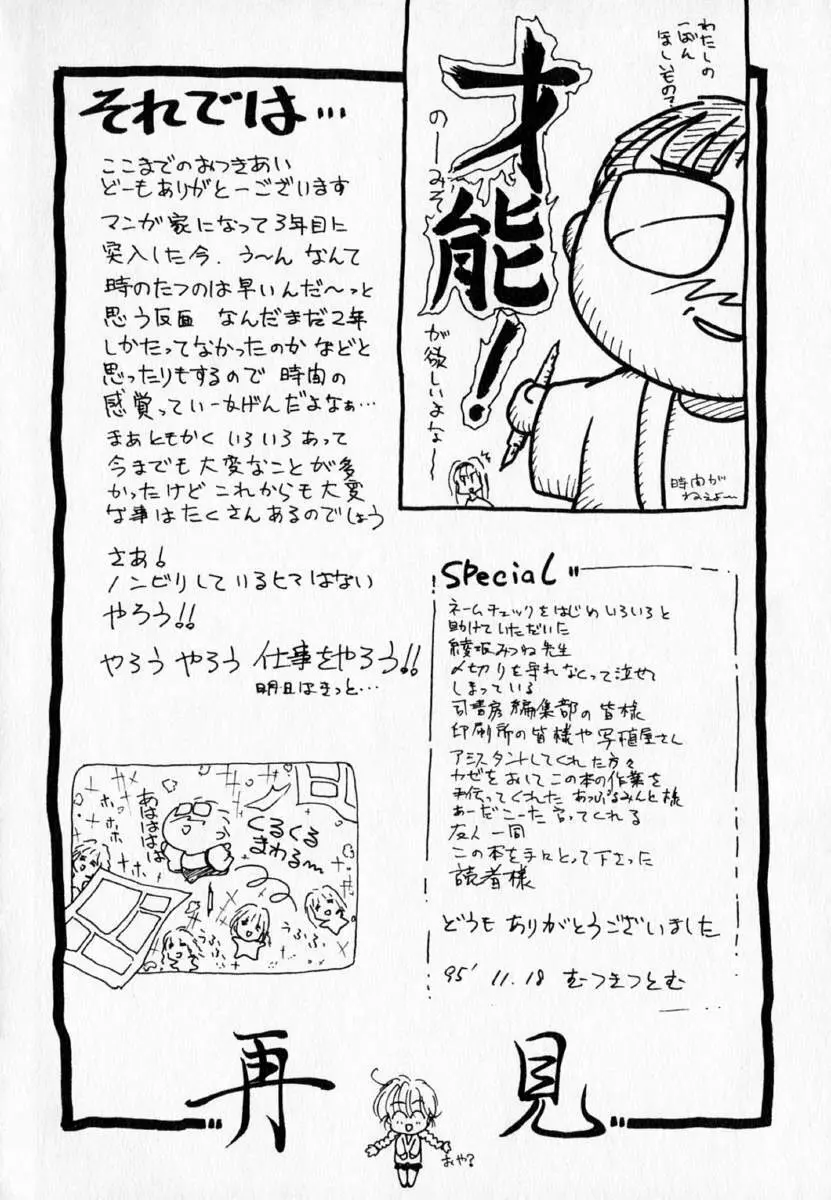 わたしの
一ばん
ほしいもの?
才能!
のーみそ
が欲しいよな〜
時間が
ねぇよ〜
それでは…
ここまでのおつきあい
どーもありがとーございます
マンガ家になって3年目に
突入した今、う〜ん なんて
時のたつのは早いんだ〜っと
思う反面 なんだまだ2年
しかたってなかったのか などと
思ったりもするので 時間の
感覚っていーかげんだよなぁ…
まぁともかく いろいろあって
今までも大変なことが多
かったけど これからも大変
な事はたくさんあるのでしょう
さあ!
ノンビリしているヒマはない
やろう!!
やろう やろう 仕事をやろう!!
明日はきっと…
Special
ネームチェックをはじめいろいろと
助けていただいた
綾坂みつね先生
〆切りを守れなくって泣せて
しまっている
司書房編集部の皆様
印刷所の皆様や写植屋さん
アシスタントしてくれた方々
カゼをおしてこの本の作業を
手伝ってくれた あっぷるみんと様
あーだこーだ言ってくれる
友人一同
この本を手にとって下さった
読者様
どうも ありがとうございました
95' 11.18 むつきつとむ
あはははは
ホホホ
ホホホ
くるくる
まわる〜
うふふ
再見
おや?